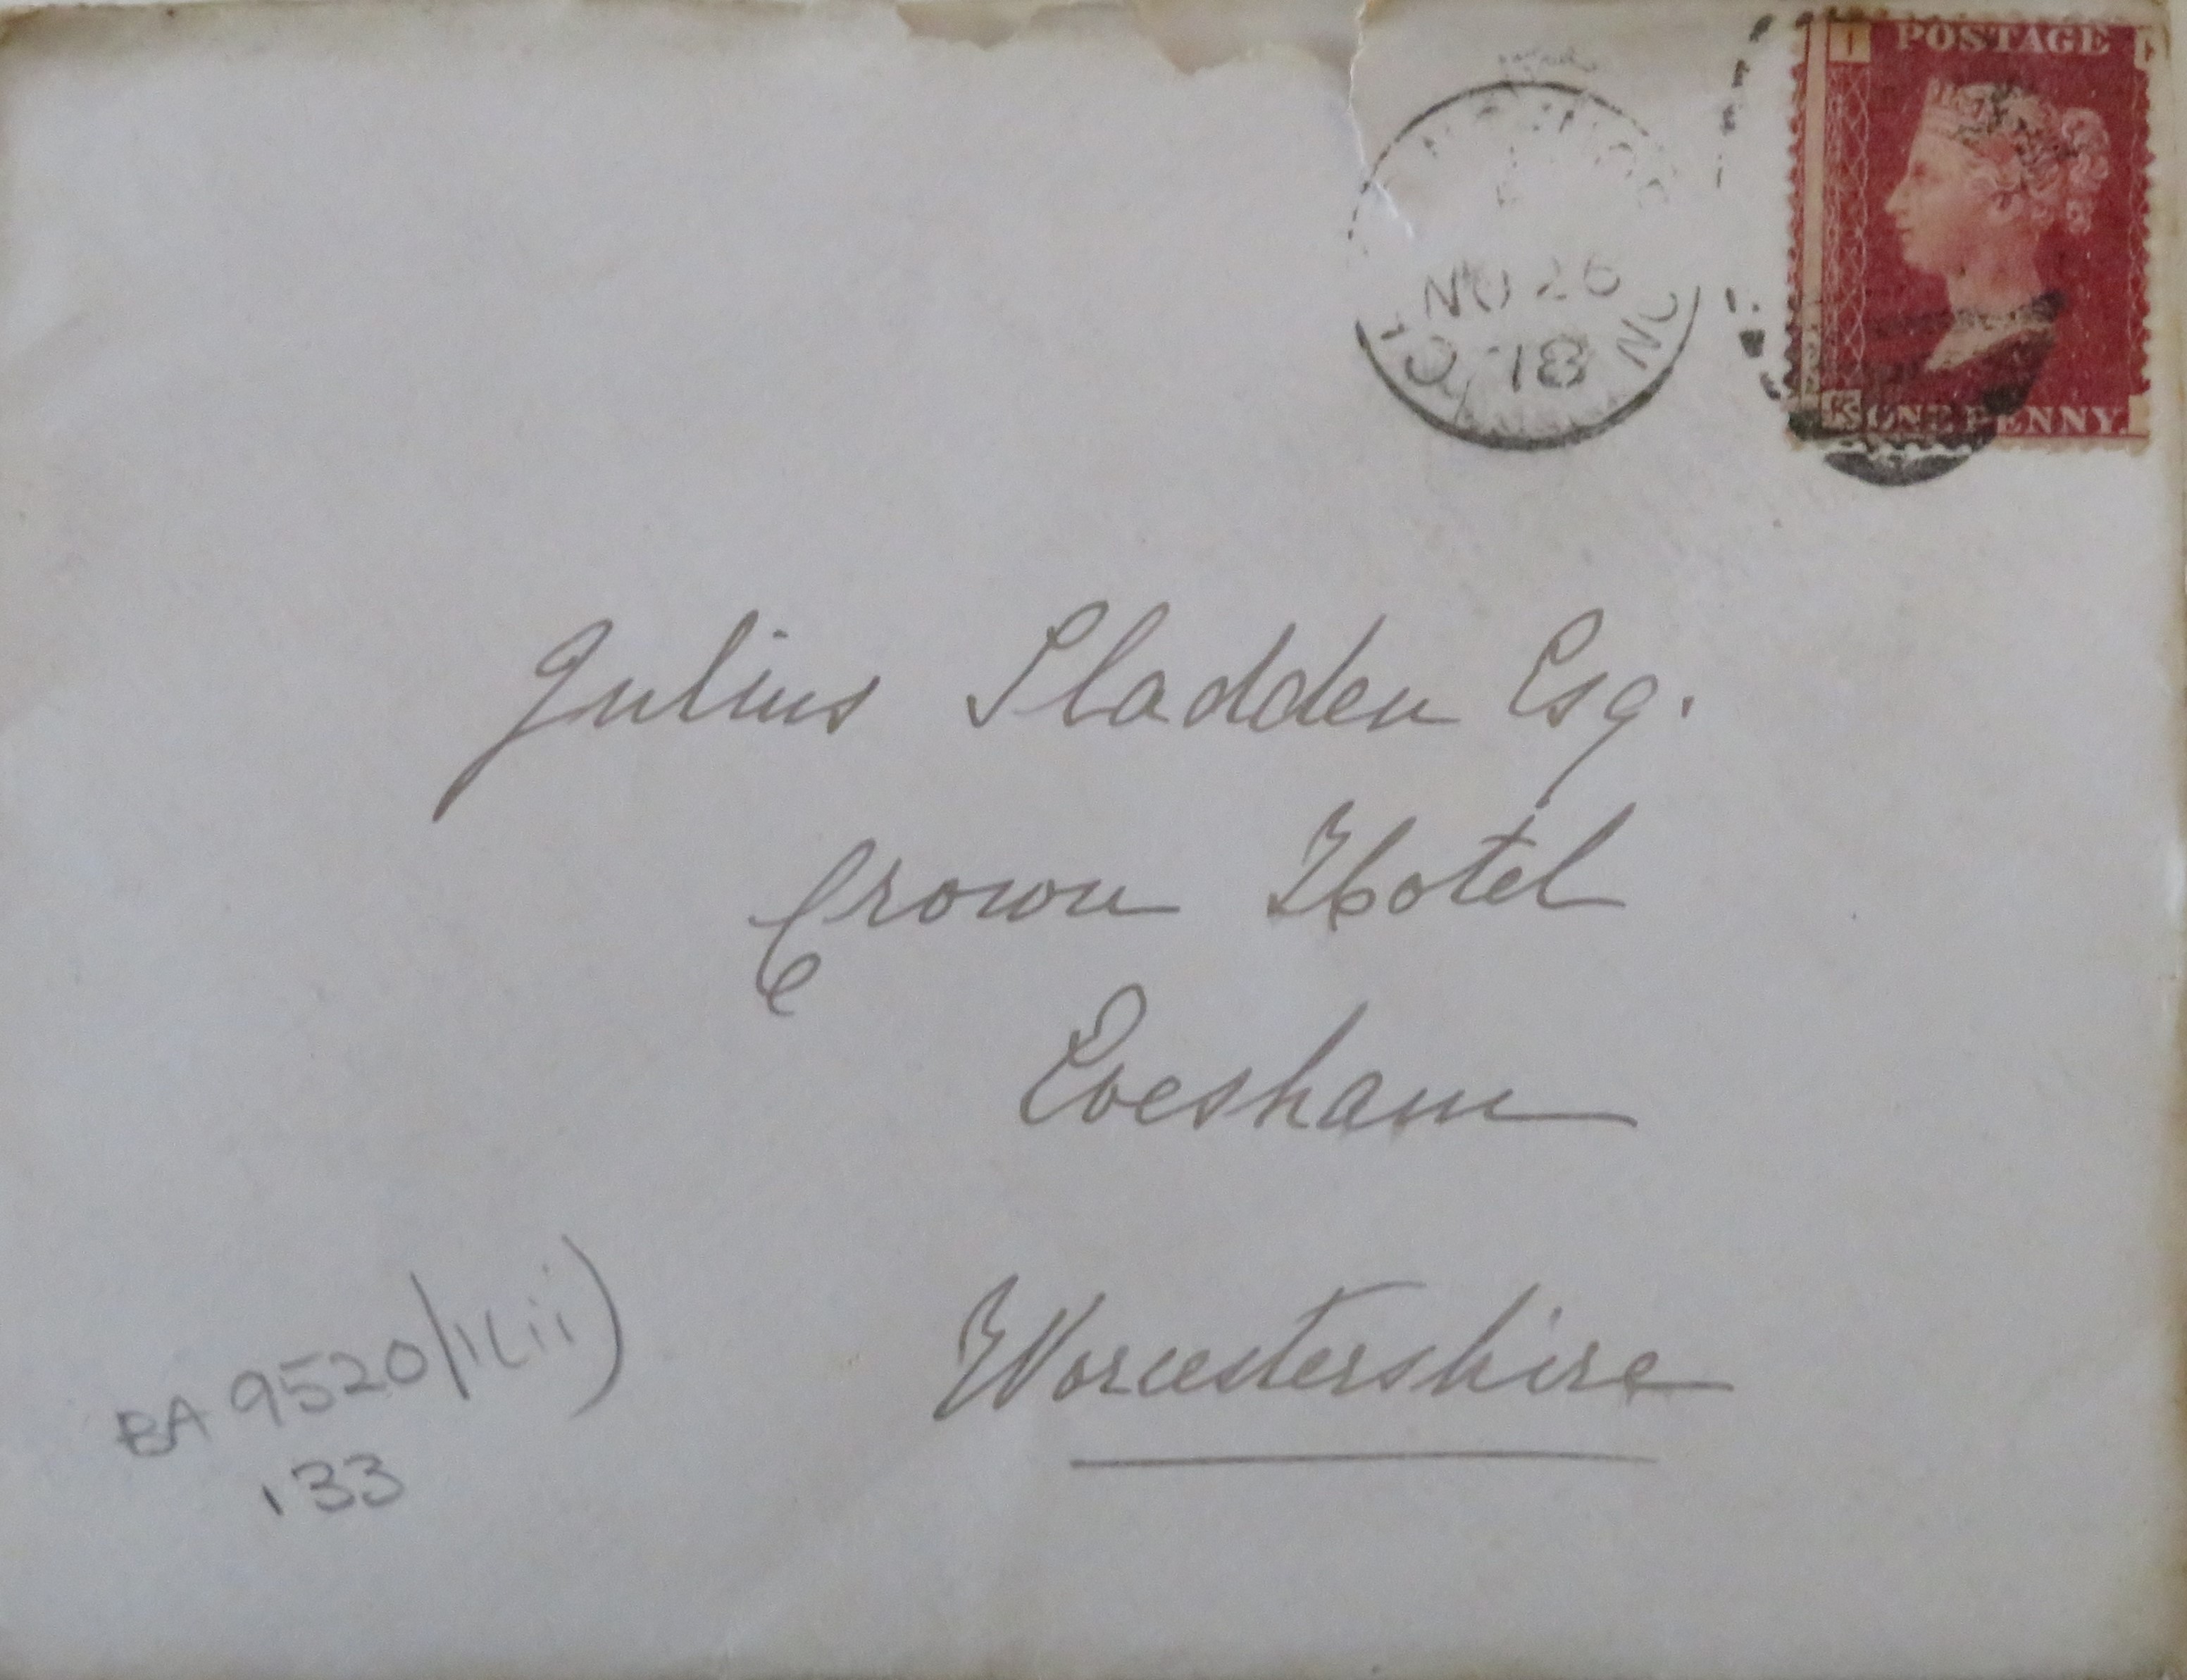 POSTAGE
I
NO 26
78
K
ONE PENNY.
Julius Sladden Esq.
Crown Hotel
Evesham
Worcestershire
BA 9520/1(ii)
133